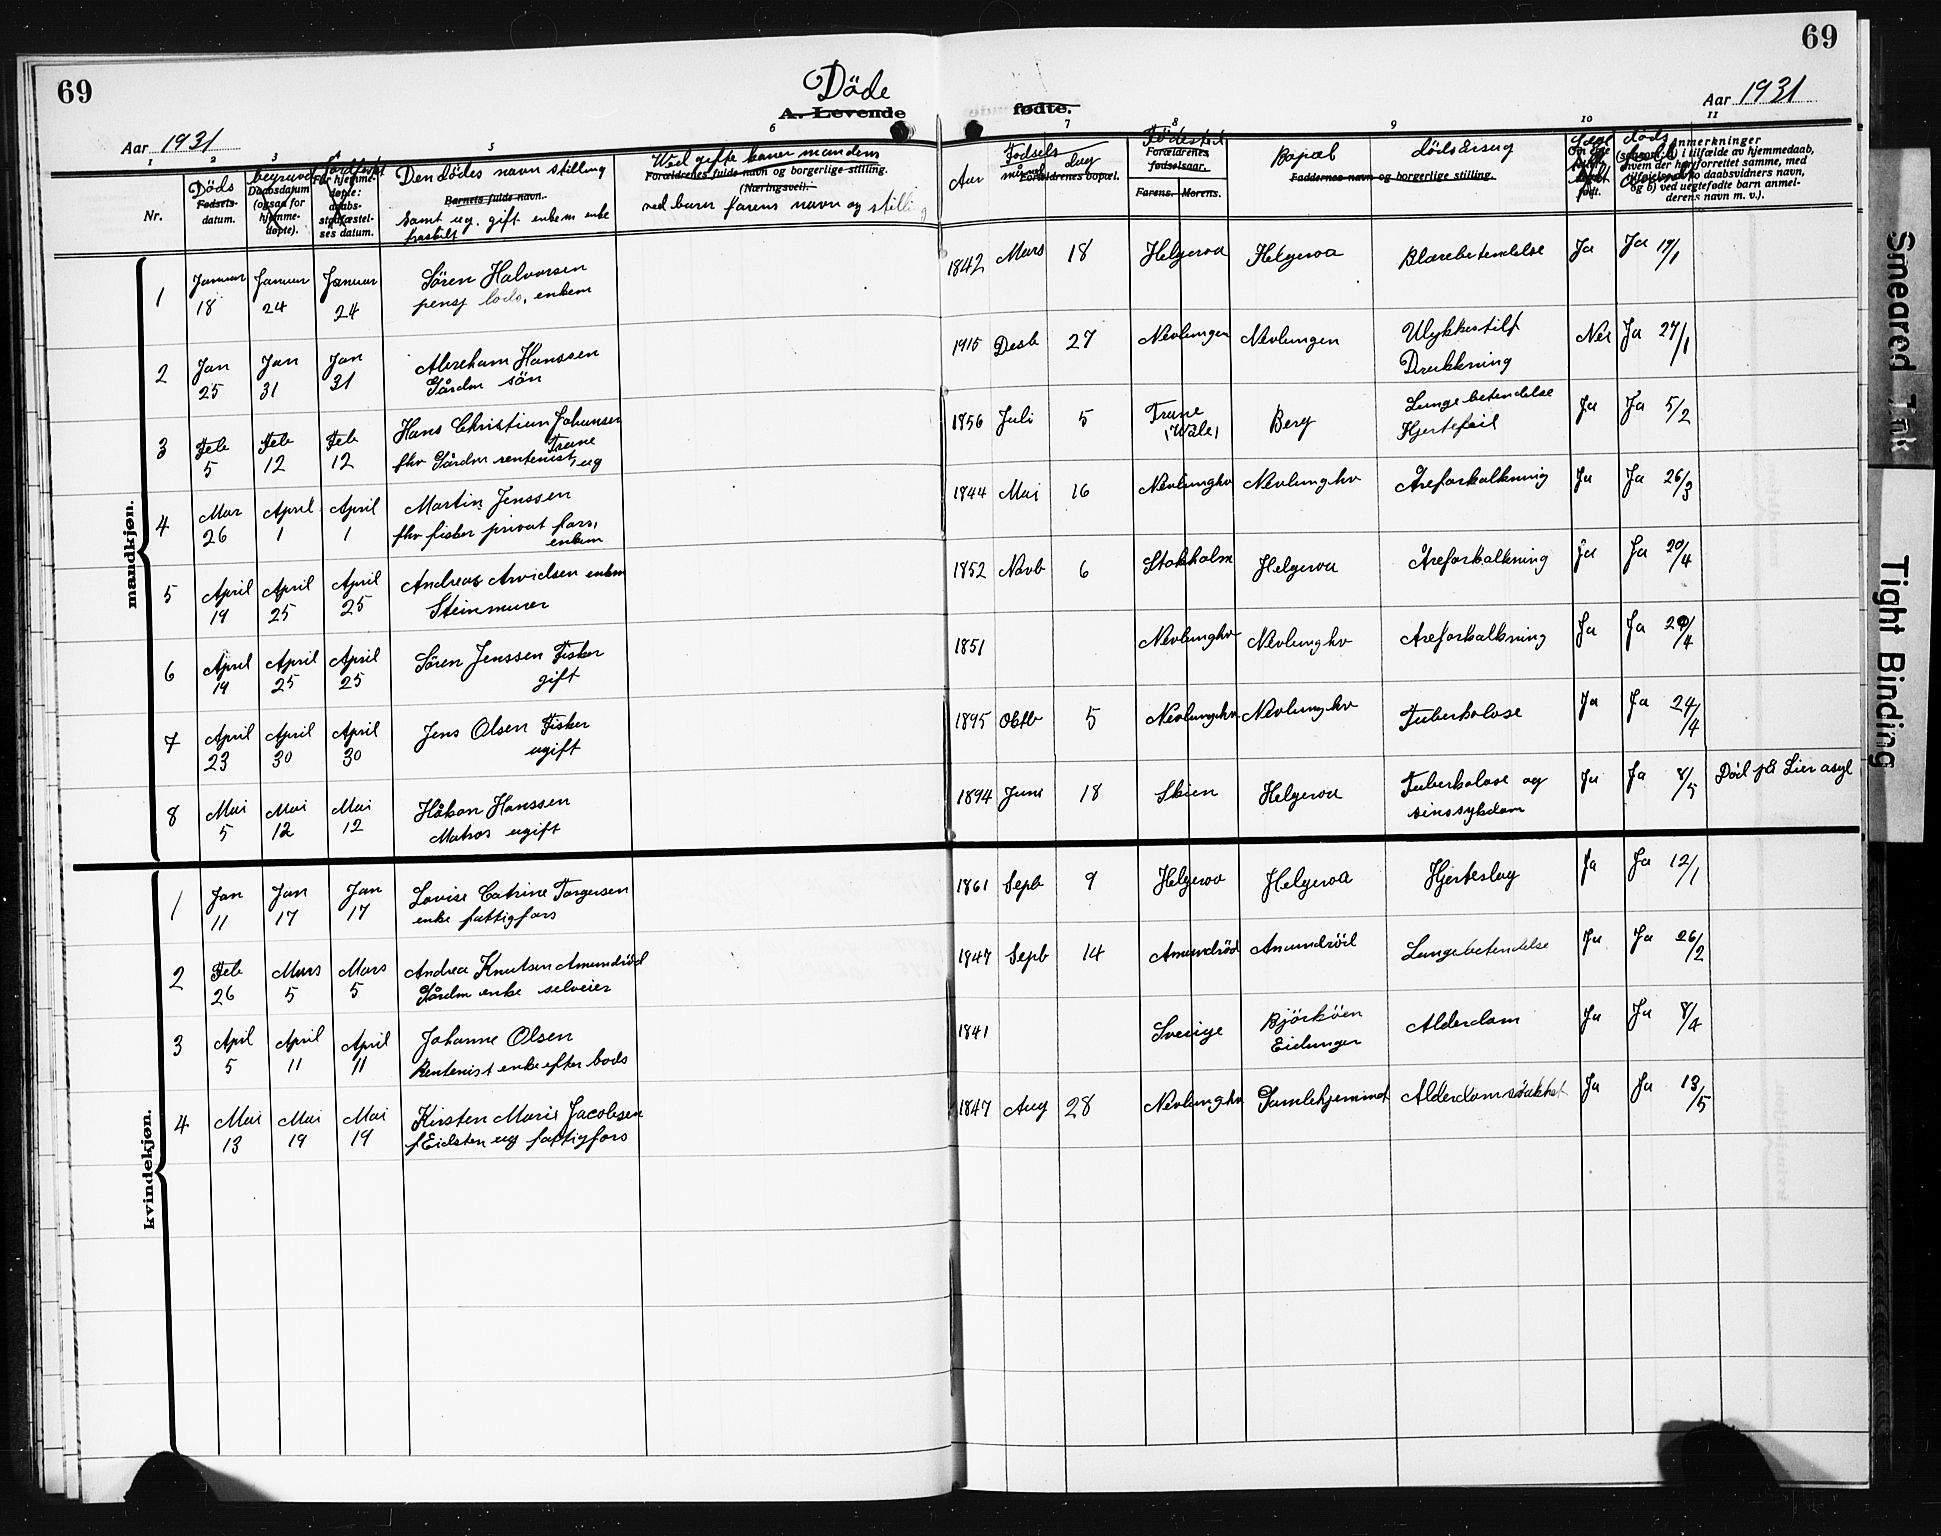 69
69
Döde
A. Levende
fødte.
Aar 1931
Aar 1931
1 2 3 5 6 7 8 9 10 11
Nr.
Döds
Fødsels-
datum.
begravel
Daabsdatum
(ogsaa for
hjemme-
døpte).
For hjemme-
døpte:
daabs-
stadfæstel-
ses datum.
Den dödes navn stilling
Barnets fulde navn.
samt ug. gift enkem enke
fraskilt
Ved gifte koner mandens
Forældrenes fulde navn og borgerlige stilling.
(Næringsvei).
ved barn farens navn og stilling
Aar
Fødsels
måned dag
Forældrenes bopæl.
Födested
Forældrenes
fødselsaar.
Farens. Morens.
Bopæl
Faddernes navn og borgerlige stilling.
dödsårsag
Anmerkninger
(saasom: a) i tilfælde av hjemmedaab,
hvem der har forrettet samme, med
tilføielse av to daabsvidners navn,
og b) ved uegtefødte barn anmel-
derens navn m. v.).
mandkjøn.
1 Januar 18 Januar 24 Januar 24 Sören Halvorsen
pensj lods, enkem
1842 Mars 18 Helgeroa Helgeroa Blærebetendelse Ja Ja 19/1
2 Jan 25 Jan 31 Jan 31 Abreham Hanssen
Gårdm sön
1915 Desb 27 Nevlungen Nevlungen Ulykkestilf
Drukkning Nei Ja 27/1
3 Feb 5 Feb 12 Feb 12 Hans Christian Johansen
Trane
fhv Gårdm rentenist, ug
1856 Juli 5 Trane
(Wåle) Berg Lungebetendelse
Hjertefeil Ja Ja 5/2
4 Mar 26 April 1 April 1 Martin Jenssen
fhv fisker privat fors,
enkem
1844 Mai 16 Nevlunghv Nevlunghv Åreforkalkning Ja Ja 26/3
5 April 19 April 25 April 25 Andreas Arvidsen enkem
Steinmurer
1852 Novb 6 Stokholm Helgeroa Åreforkalkning Ja Ja 20/4
6 April 19 April 25 April 25 Sören Jenssen Fisker
gift
1851 Nevlunghv Nevlunghv Åreforkalkning Ja Ja 20/4
7 April 23 April 30 April 30 Jens Olsen Fisker
ugift
1895 Oktb 5 Nevlunghv Nevlunghv Tuberkolose Ja Ja 24/4
8 Mai 5 Mai 12 Mai 12 Håkon Hanssen
Matros ugift
1894 Juni 18 Skien Helgeroa Tuberkolose og
sinssykdom Ja Ja 8/5 Död på Lier asyl
kvindekjøn.
1 Jan 11 Jan 17 Jan 17 Lovise Catrine Torgersen
enke fattigfors
1861 Sepb 9 Helgeroa Helgeroa Hjerteslag Ja Ja 12/1
2 Feb 26 Mars 5 Mars 5 Andrea Knutsen Amundröd
Gårdm enke selveier
1847 Sepb 14 Amundröd Amundröd Lungebetendelse Ja Ja 26/2
3 April 5 April 11 April 11 Johanne Olsen
Rentenist enke efter lods
1841 Sverige Björköen
Eidanger Alderdom Ja Ja 8/4
4 Mai 13 Mai 19 Mai 19 Kirsten Marie Jacobsen
f Eidsten ug fattigfors
1847 Aug 28 Nevlunghv Gamlehjemmet Alderdomsvakhet Ja Ja 13/5
Smeared Ink
Tight Binding